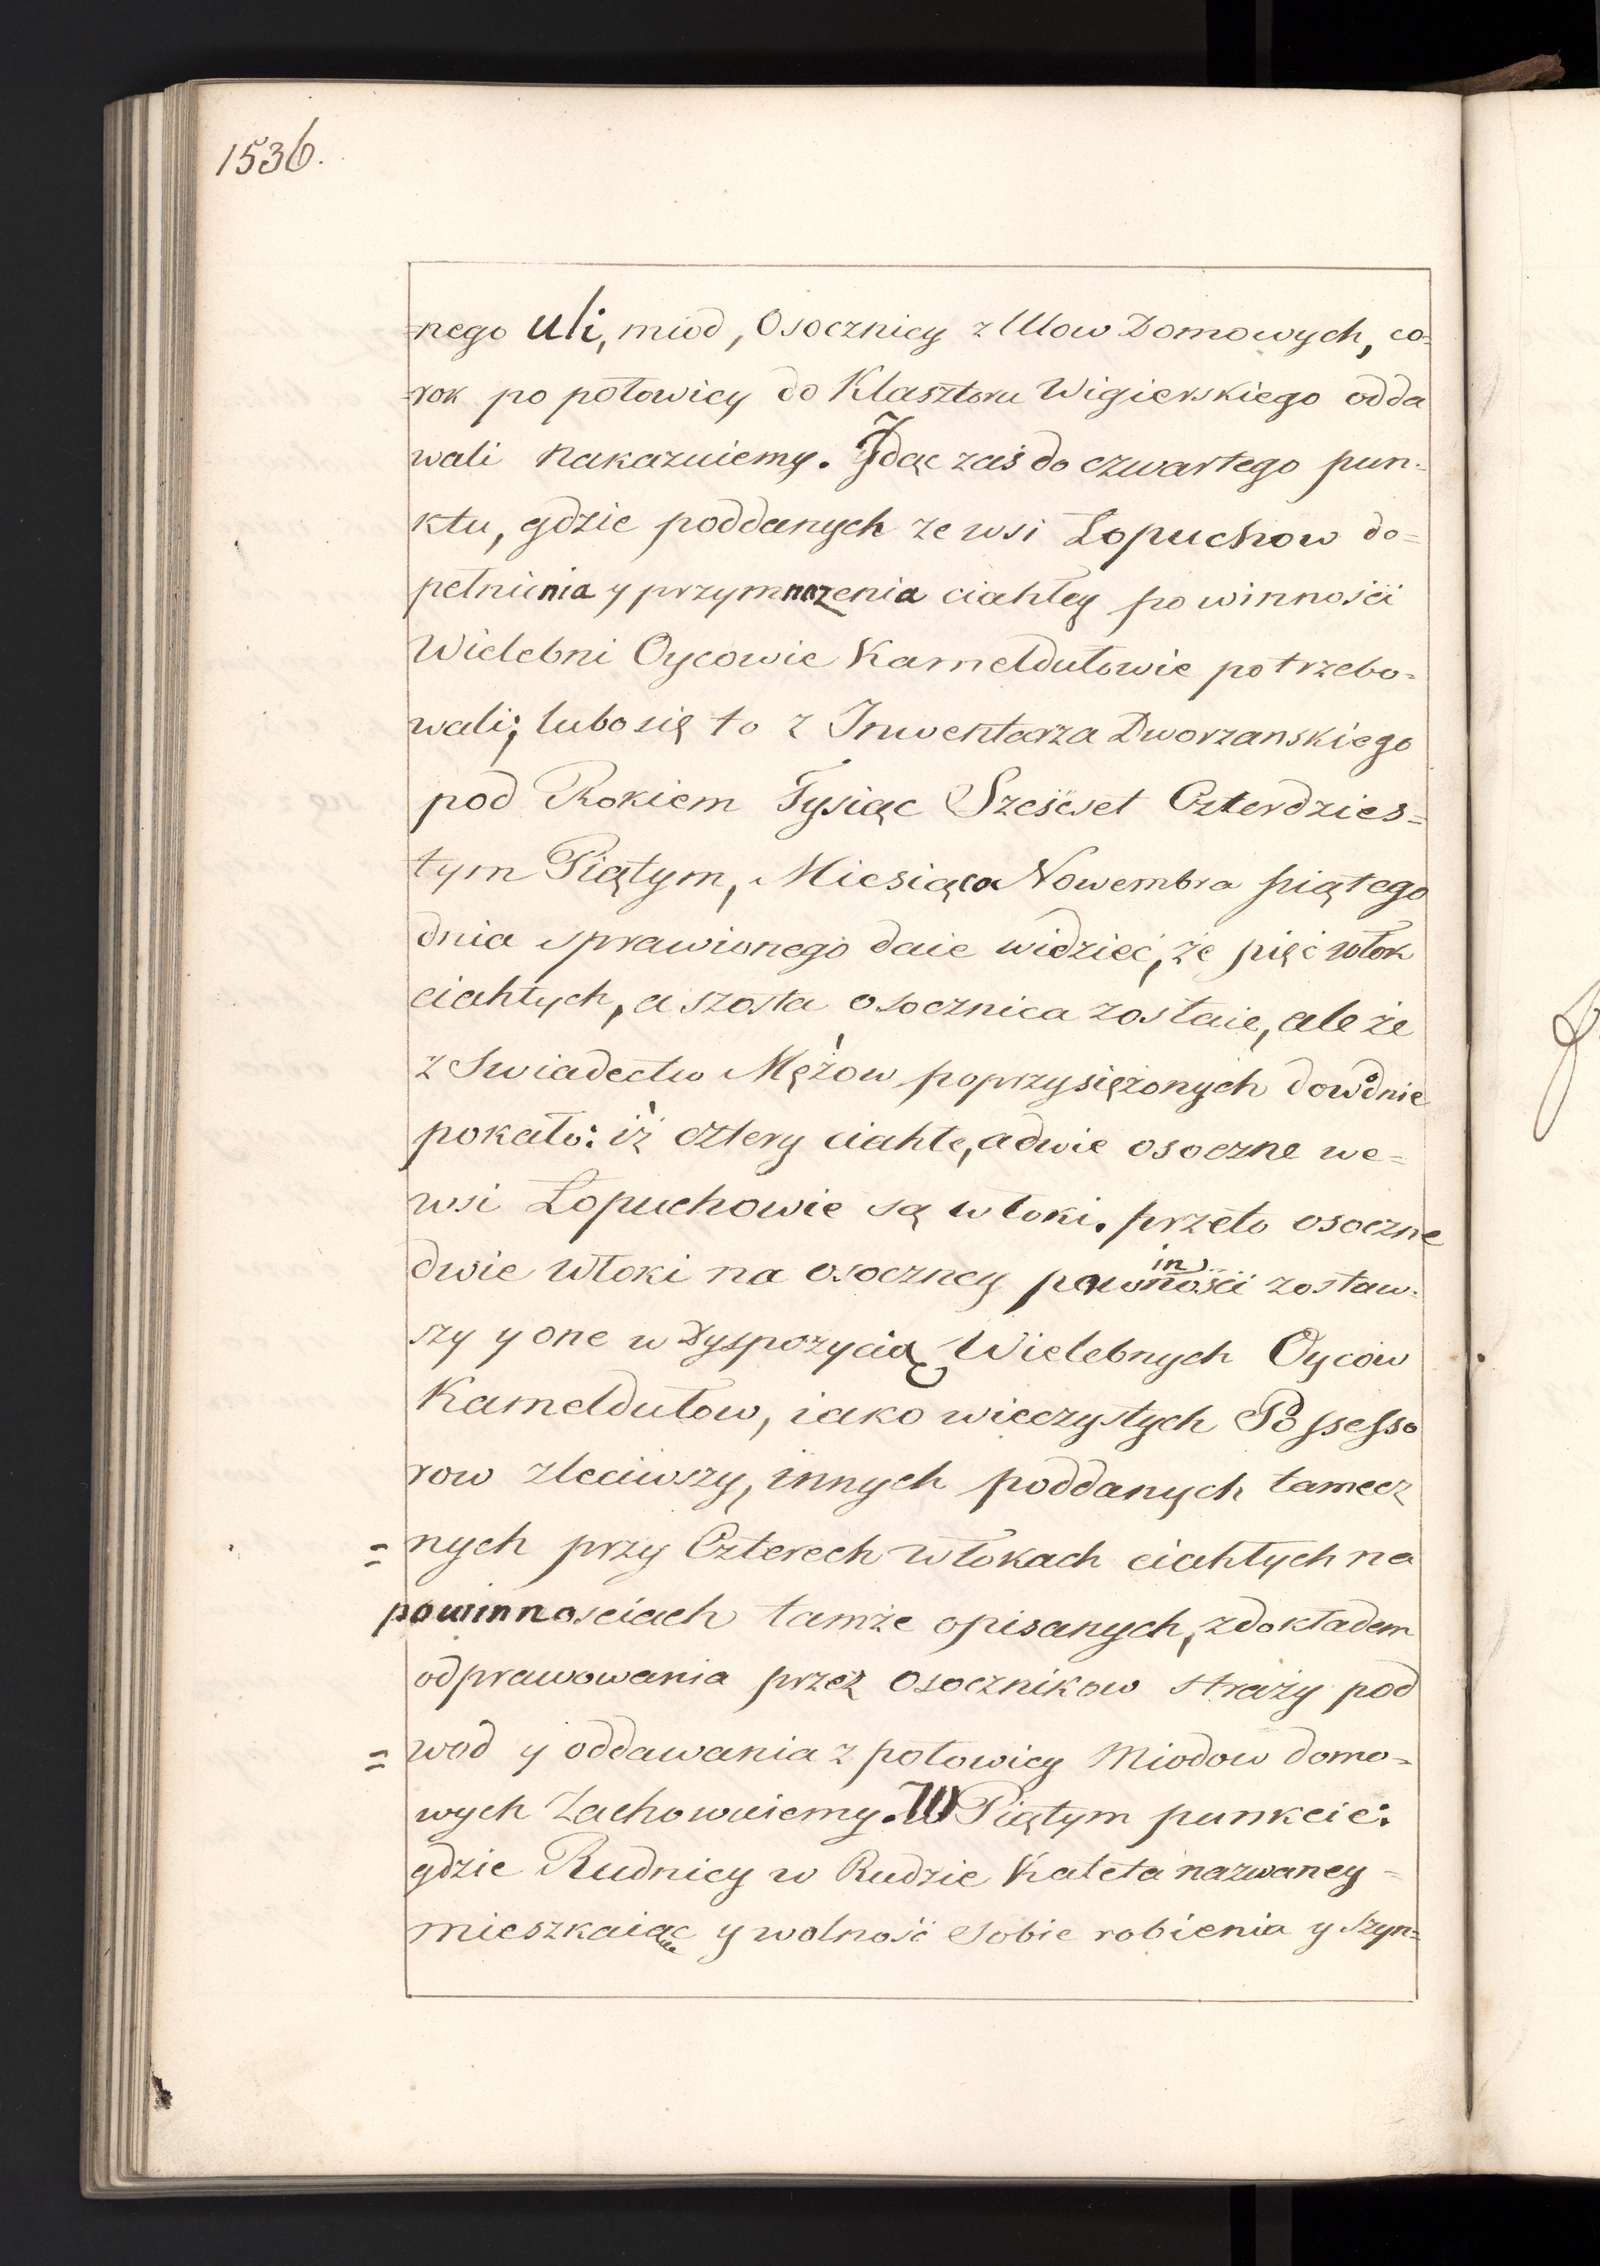 1536.
=nego uli, miod, Osocznicy z Ulow Domowych, co=
=rok po połowicy do Klasztoru Wigierskiego odda
wali nakazuiemy. Jdąc zaś do czwartego pun=
ktu, gdzie poddanych ze wsi Łopuchow do=
pełnienia y przymnozenia ciahłey powinności
Wielebni Oycowie Kameldułowie potrzebo=
wali; lubo się to z Inwentarza Dworzanskiego
pod Rokiem Tysiąc Sześćset Czterdzies=
tym Piątym, Miesiąca Nowembra piątego
dnia sprawionego daie widzieć, że pięć włok
ciahłych, a szosta osocznica zostaie, ale że
z Swiadectw Mężow poprzysiężonych dowodnie
pokało: iż cztery ciahłe, a dwie osoczne we=
wsi Łopuchowie są włoki. przeto osoczne
dwie włoki na osoczney powinności zostaw=
szy y one w Dyspozycią Wielebnych Oycow
Kameldułow, iako wieczystych Possesso
row zleciwszy, innych poddanych tamecz
= nych przy Czterech włokach ciahłych na
powinnosciach tamże opisanych, z dokładem
odprawowania przez Osocznikow straży pod
= wod y oddawania z połowicy Miodow domo=
wych Zachowuiemy. W Piątym punkcie:
gdzie Rudnicy w Rudzie Kaleta nazwaney =
mieszkaiąc y wolność sobie robienia y szyn=